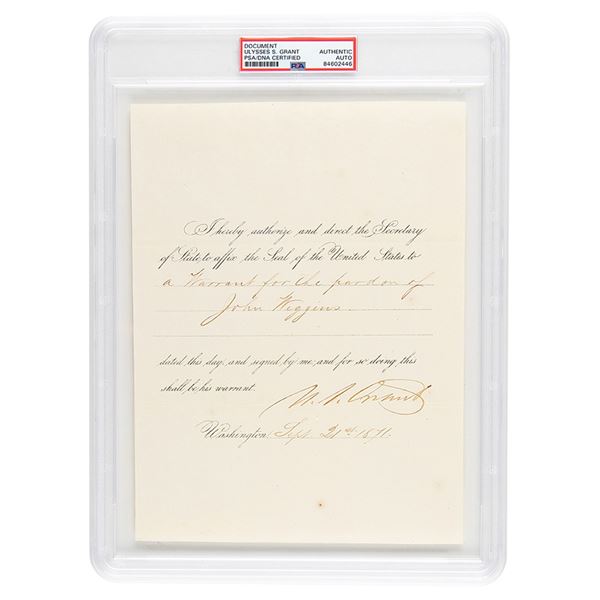 DOCUMENT
ULYSSES S. GRANT
PSA/DNA CERTIFIED
AUTHENTIC
AUTO
84602446
I hereby authorize and direct the Secretary
of State to affix the Seal of the United States to
a Warrant for the pardon of
John Wiggins
dated this day, and signed by me; and for so doing this
shall be his warrant.
U. S. Grant
Washington, Sept. 21st 1871.